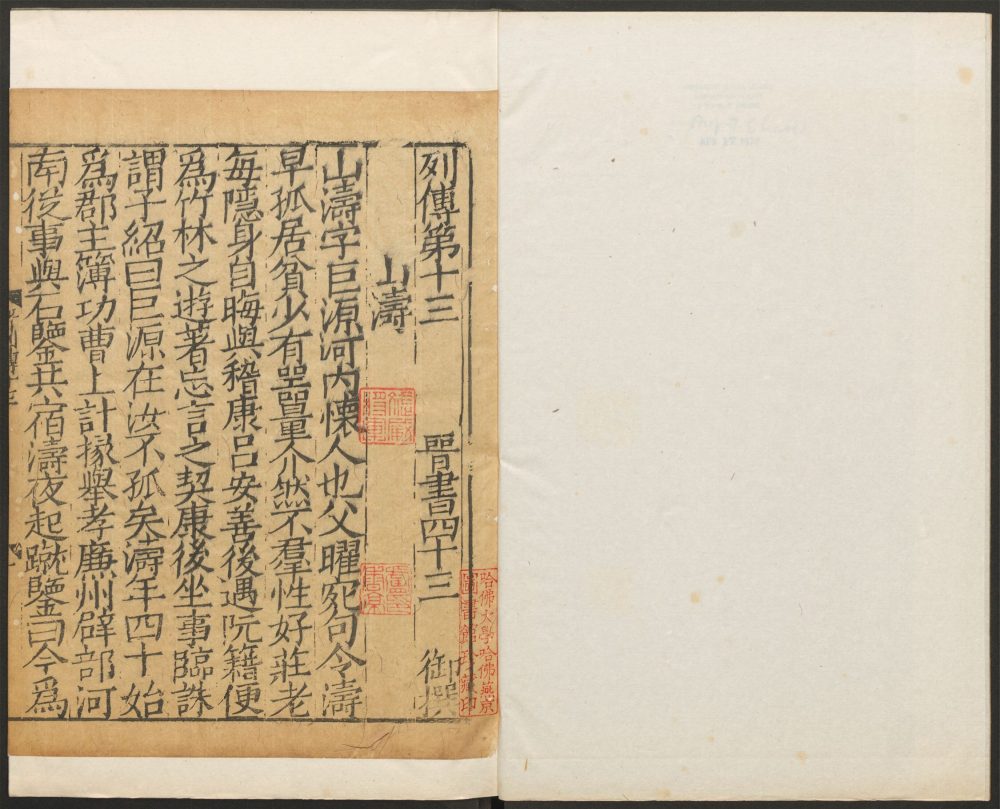 列傳第十三 晉書四十三 御撰
山濤
山濤字巨源河内懷人也父曜宛句令濤
早孤居貧少有器量介然不羣性好莊老
每隱身自晦與嵇康吕安善後遇阮籍便
爲竹林之遊著忘言之契康後坐事臨誅
謂子紹曰巨源在汝不孤矣濤年四十始
爲郡主簿功曹上計掾舉孝廉州辟部河
南從事與石鑒共宿濤夜起蹴鑒曰今爲
哈佛大學哈佛燕京
圖書館珍藏印